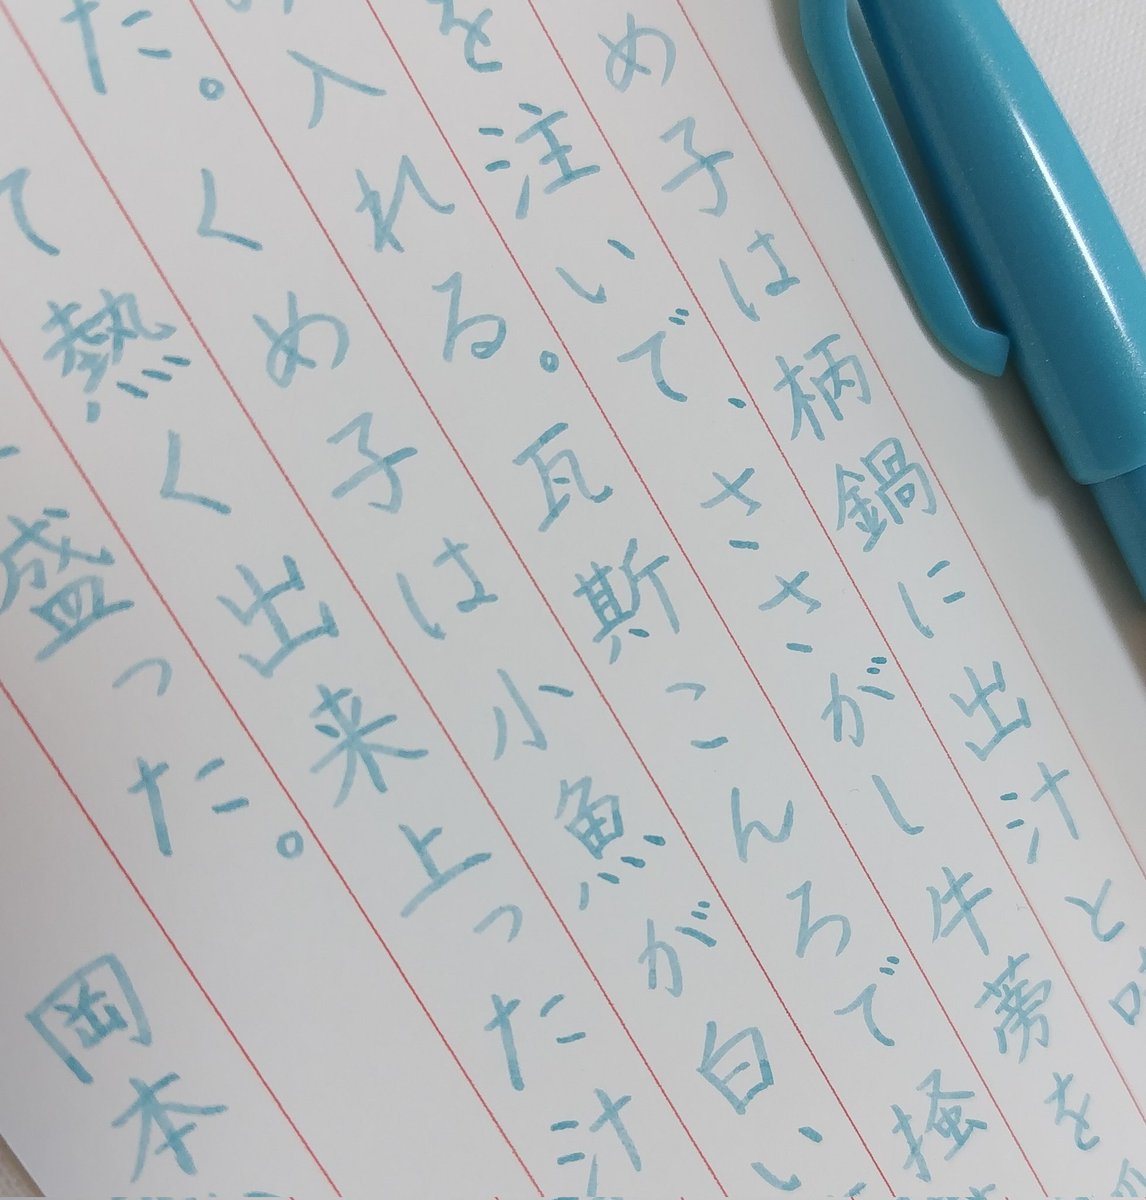 め子は柄鍋に出汁と
を注いで、ささがし牛蒡を
入れる。瓦斯こんろで掻
た。くめ子は小魚が白い
て熱く出来上った汁
盛った。
岡本